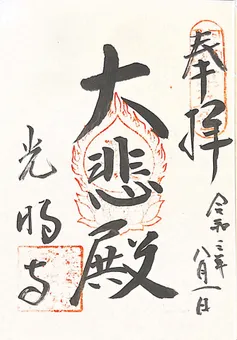 奉拝
令和三年八月一日
大悲殿
光明寺